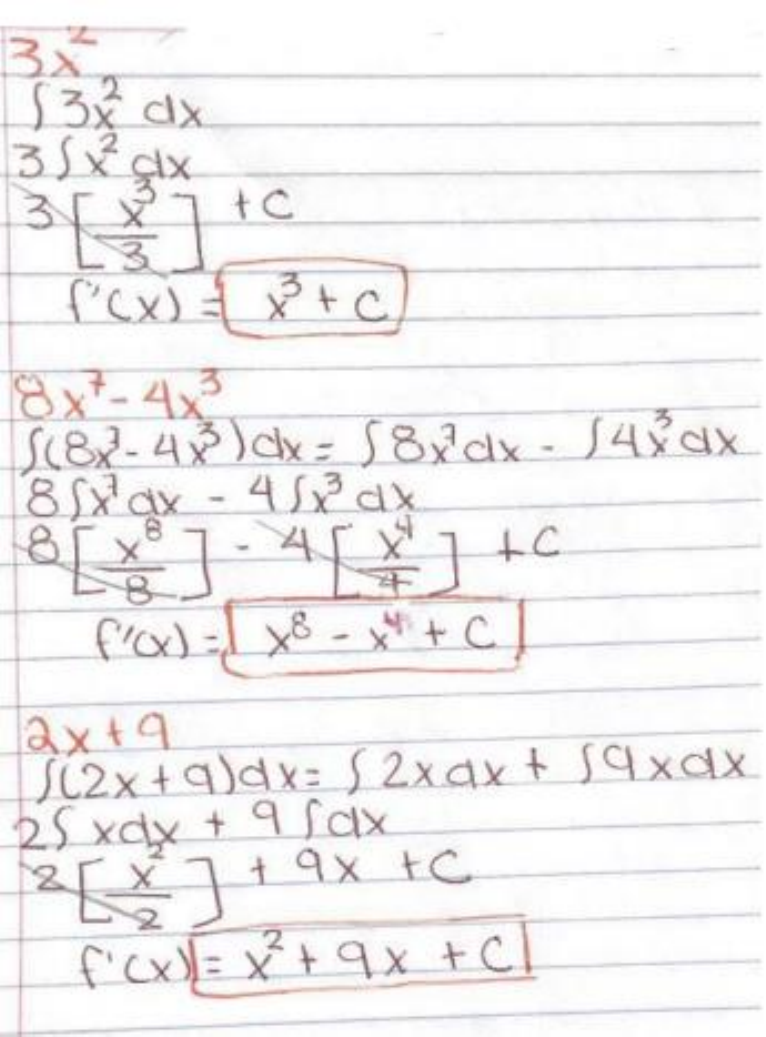 3x²
∫3x² dx
3∫x² dx
3[x³/3] + C
f'(x) = x³ + C
8x⁷ - 4x³
∫(8x⁷ - 4x³)dx = ∫8x⁷dx - ∫4x³dx
8∫x⁷dx - 4∫x³dx
8[x⁸/8] - 4[x⁴/4] + C
f'(x) = x⁸ - x⁴ + C
2x + 9
∫(2x + 9)dx = ∫2xdx + ∫9xdx
2∫xdx + 9∫dx
2[x²/2] + 9x + C
f'(x) = x² + 9x + C